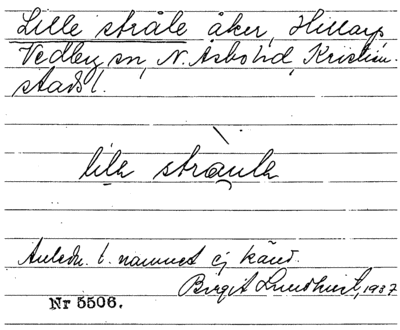 Lille stråle åker, Hillarps
Vedby sn, N. Åsbo hd, Kristian-
stads l.
lila straula
Anledn. t. namnet ej känd.
Birgit Lundkvist, 1937
Nr 5506.